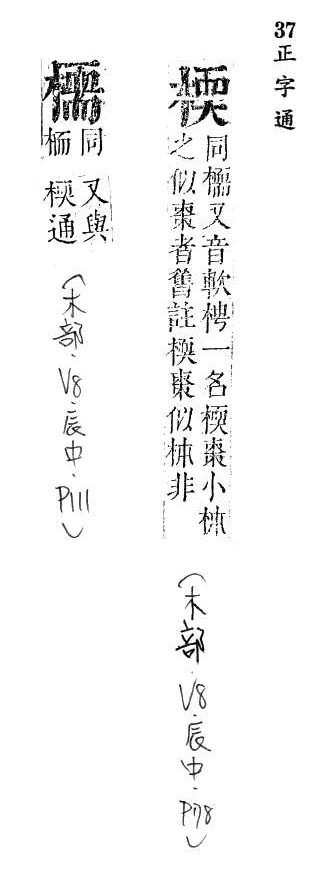 37正字通
㮕
同檽又音軟梬一名㮕棗小柹
之似棗者舊註㮕棗似柹非
(木部.V8.辰中.P78)
檽
同 又與
栭 㮕通
(木部.V8.辰中.P111)